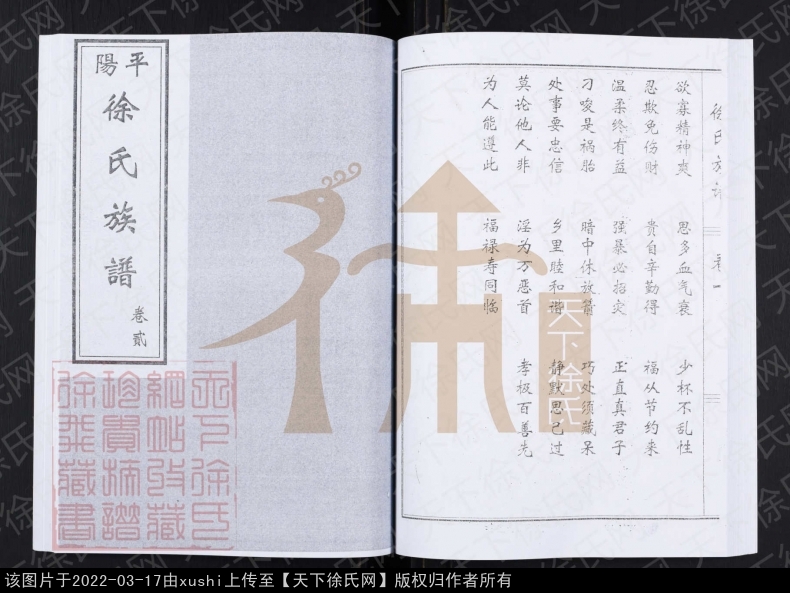 平陽
徐氏族譜
卷貳
徐氏族谱
卷一
欲寡精神爽 思多血气衰 少杯不乱性
忍欺免伤财 贵自辛勤得 福从节约来
温柔终有益 强暴必招灾 正直真君子
刁唆是祸胎 暗中休放箭 巧处须藏呆
处事要忠信 乡里睦和谐 静默思己过
莫论他人非 淫为万恶首 孝极百善先
为人能遵此 福禄寿同临
天下徐氏网
该图片于2022-03-17由xushi上传至【天下徐氏网】版权归作者所有